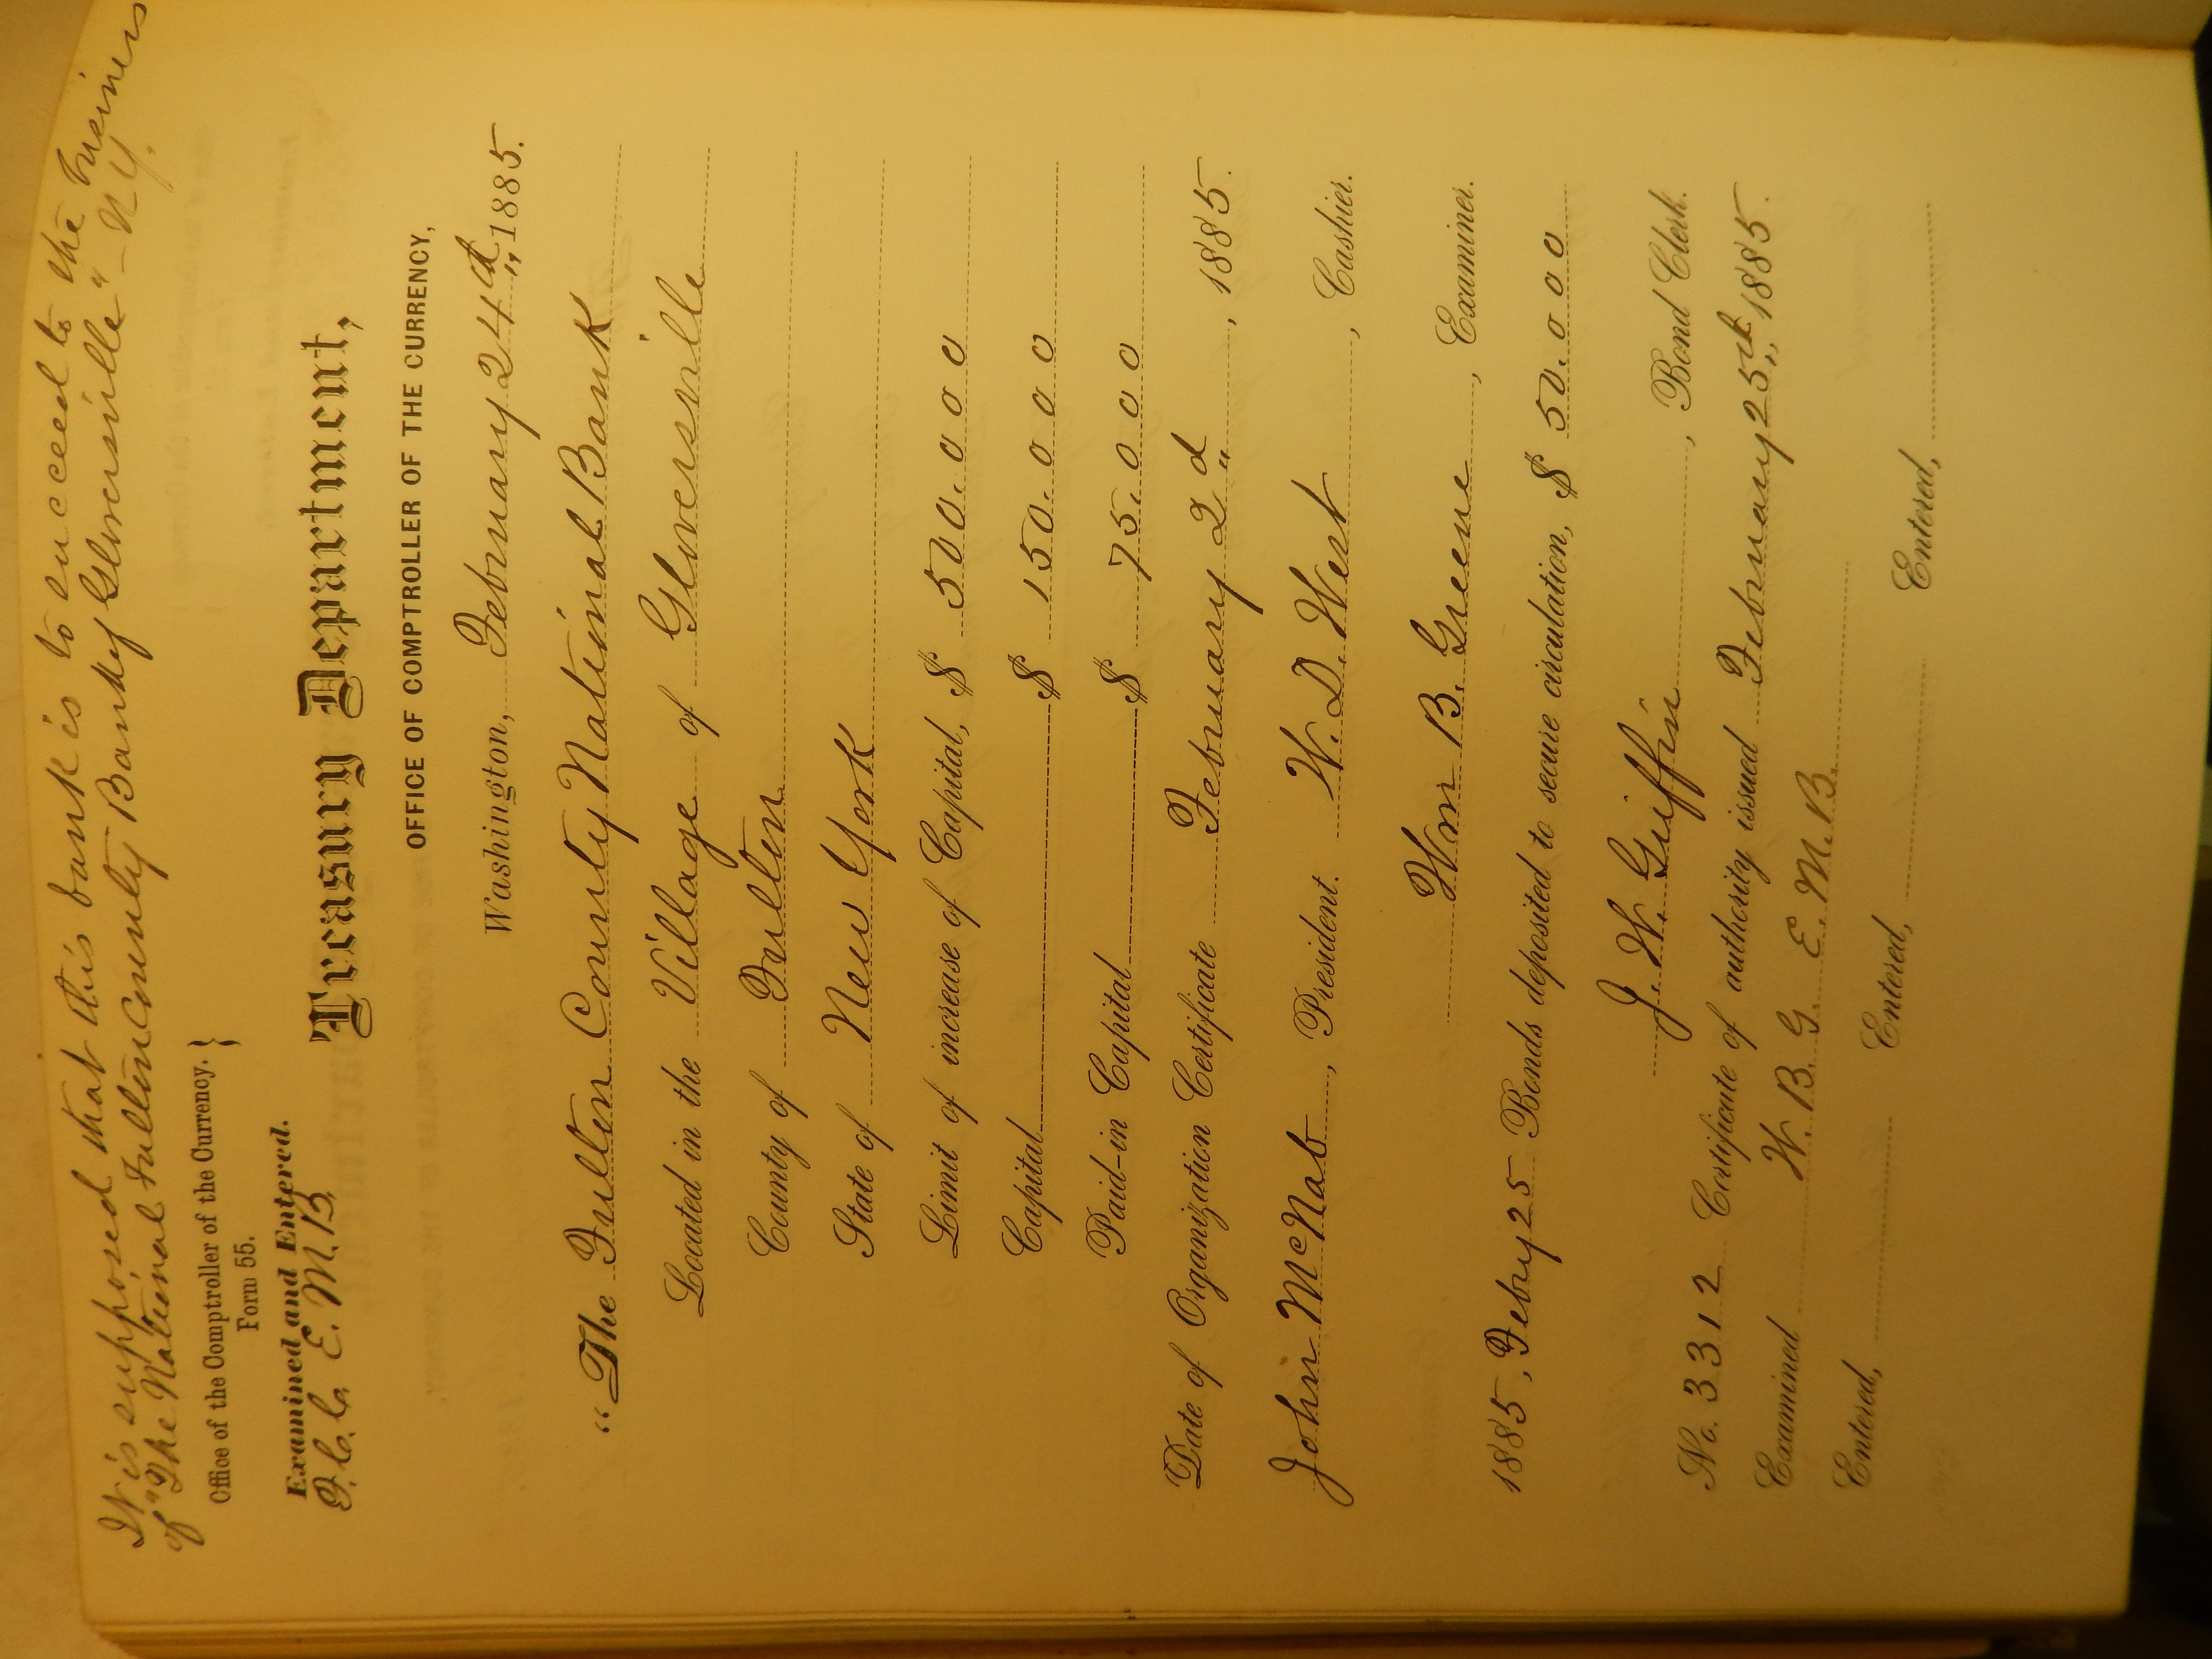 It is supposed that this bank is to succeed to the business
of "The National Fulton County Bank of Gloversville" - N.Y.
Office of the Comptroller of the Currency. }
Form 55.
Examined and Entered.
F.C.C. E.M.B.
Treasury Department,
OFFICE OF COMPTROLLER OF THE CURRENCY,
Washington, February 24th, 1885.
"The Fulton County National Bank
Located in the Village of Gloversville
County of Fulton
State of New York
Limit of increase of Capital, $ 500.000
Capital $ 150.000
Paid-in Capital $ 75.000
Date of Organization Certificate February 2d, 1885.
John McNab, President. W. D. West, Cashier.
Wm B. Greene, Examiner.
1885, Feby 25 Bonds deposited to secure circulation, $ 50.000
J. W. Griffin, Bond Clerk.
No. 3312 Certificate of authority issued February 25th, 1885.
Examined W. B. G. E. M. B.
Entered, Entered, Entered,